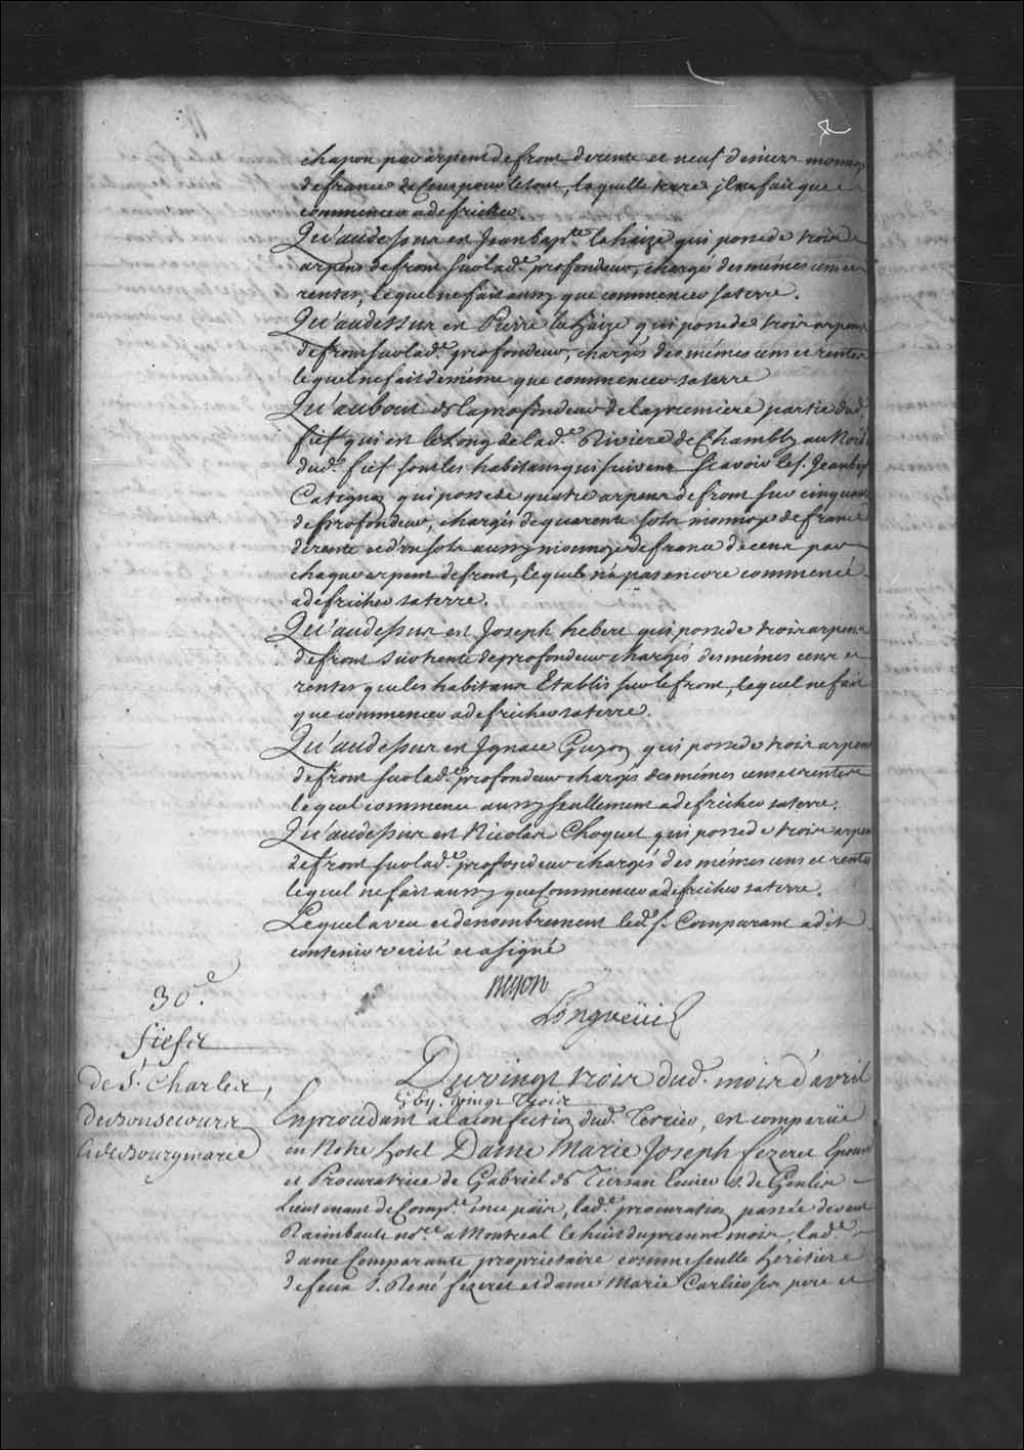 chapon par arpent de front de rente et neuf deniers monnoye
de france de Cens pour le tout, laquelle terre jl ne fait que
commencer a defricher.
Qu'audessus est Jean bapte. la haize qui possede trois
arpens de front sur lade. profondeur, chargés des mêmes cens et
rentes, lequel ne fait aussy que commencer sa terre.
Qu'audessus est Pierre la haize qui possede trois arpens
de front sur lade. profondeur, chargés des mêmes cens et rentes
lequel ne fait de même que commencer sa terre
Qu'au bout de la profondeur de la premiere partie dud.
fief qui est le long de lade. Riviere de Chambly au Nord
dud. fief sont les habitans qui suivent Scavoir le s. Jean bap
Catignon qui possede quatre arpens de front sur cinquante
de profondeur, chargés de quarente sols monnoye de france
de rente et d'un sols aussy monnoye de france de cens par
chaque arpent de front, lequel n'a pas encore commencé
a defricher sa terre.
Qu'audessus est Joseph hebert qui possede trois arpens
de front sur trente de profondeur chargés des mêmes cens et
rentes que les habitans Etablis sur le front, lequel ne fait
que commencer a defricher sa terre.
Qu'audessus est Jgnace Guyon qui possede trois arpens
de front sur lade. profondeur chargés des mêmes cens et rentes
lequel commence aussy seullement a defricher sa terre.
Qu'audessus est Nicolas Choquet qui possede trois arpens
de front sur lade. profondeur chargés des mêmes cens et rentes
lequel ne fait aussy que Commencer a defricher sa terre.
Lequel aveu et denombrement led. s. Comparant a dit
contenir verité et a signé
Longueüil
30e.
fiefs
de St. Charles,
de Bonsecours
et de Bourgmarie
Du vingt trois dud. mois d'avril
vingt trois
En procedant a la confection dud. Terrier, est comparüe
en Notre hotel Dame Marie Joseph fezeret Epouse
et Procuratrice de Gabriel de Tiersan Ecuier s. de Genlis
Lieutenant de Compe. en ce païs, lade. procuration passée devant
Raimbault nore. a Montreal le huit du present mois, lade.
dame Comparante proprietaire comme seulle heritiere
de feus S. René fezeret et dame Marie Carlier ses pere et